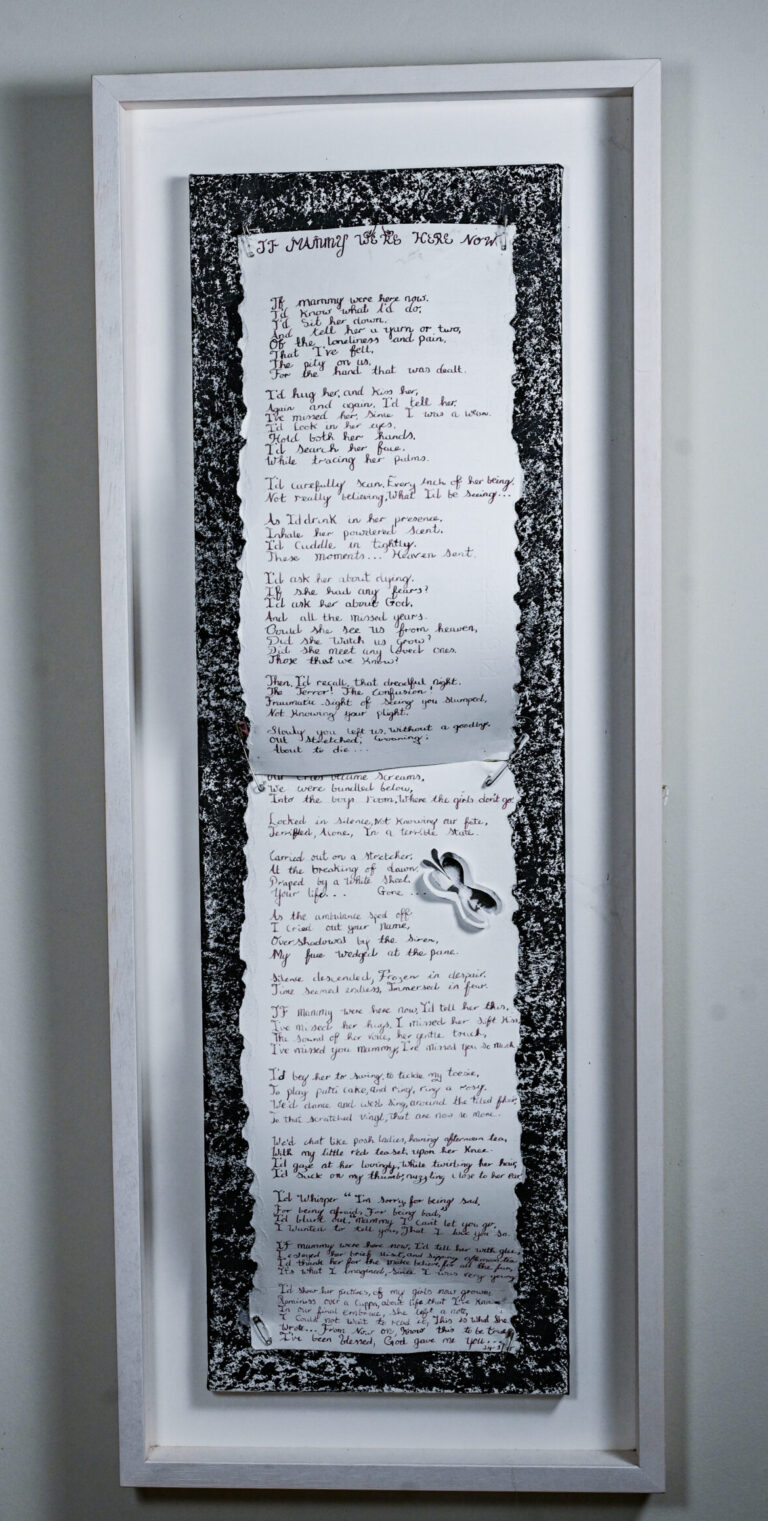 IF MAMMY WERE HERE NOW
If mammy were here now.
I'd know what I'd do,
I'd Sit her down,
And tell her a yarn or two,
Of the loneliness and pain,
That I've felt,
The pity on us,
For the hand that was dealt.
I'd hug her, and kiss her,
Again and again, I'd tell her,
I've missed her, since I was a wean.
I'd Look in her eyes,
Hold both her hands,
I'd search her face,
While tracing her palms.
I'd carefully scan, Every inch of her being,
Not really believing, What I'd be seeing...
As I'd drink in her presence,
Inhale her powdered scent,
I'd Cuddle in tightly.
These moments... Heaven sent.
I'd ask her about dying.
If she had any fears?
I'd ask her about God,
And all the missed years.
Could she see us from heaven,
Did she Watch us grow?
Did she meet any loved ones.
Those that we know?
Then, I'd recall, that dreadful night.
The Terror! The Confusion!
Traumatic sight of seeing you slumped,
Not Knowing your plight.
Slowly you left us, without a goodbye.
Out stretched, Groaning.
About to die...
Our cries became screams,
We were bundled below,
Into the boys room, Where the girls don't go.
Locked in silence, Not Knowing our fate,
Terrified, Alone, In a terrible state.
Carried out on a stretcher,
At the breaking of dawn,
Draped by a White sheet,
Your life... Gone ...
As the ambulance sped off
I cried out your name,
Overshadowed by the siren,
My face wedged at the pane.
Silence descended, Frozen in despair.
Time seemed endless, Immersed in fear.
IF Mammy were here now, I'd tell her this,
I've missed her hugs, I missed her soft kiss,
The sound of her voice, her gentle touch,
I've missed you Mammy, I've missed you so much.
I'd beg her to swing, to tickle my toesie,
To play patti cake, and ring, ring a rosy.
We'd dance and we'd sing, around the tiled floor,
To that scratched vinyl, that are now no more.
We'd chat like posh ladies, having afternoon tea,
With my little red teaset, upon her Knee.
I'd gaze at her lovingly, While twirling her hair,
I'd suck on my thumb, nuzzling close to her ear.
I'd Whisper "I'm sorry, for being sad,
For being afraid, For being bad,"
I'd blurt out, "Mammy I can't let you go,
I Wanted to tell you, That I love you so.
If mammy were here now, I'd tell her with glee,
I enjoyed her brief visit, and sipping afternoon tea
I'd thank her for the make believe, for all the fun,
It's what I imagined, Since I was very young
I'd show her pictures, of my girls now grown,
Reminiss over a Cuppa, about life that I've Known
In our final embrace, she left a note,
I Could not Wait to read it, This is What She
Wrote... From Now on, Know this to be true
I've been blessed, God gave me You...